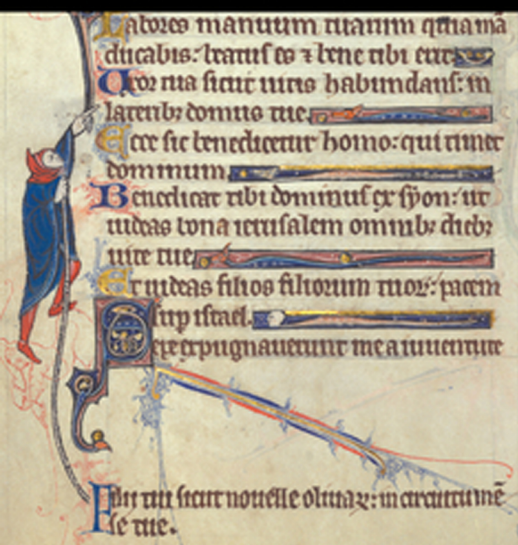 Labores manuum tuarum quia mā
ducabis: beatus es ⁊ bene tibi erit
Uxor tua sicut uitis habundans: in
laterib; domus tue.
Ecce sic benedicetur homo: qui timet
dominum.
Benedicat tibi dominus ex syon: ut
uideas bona ierusalem omnib; dieb;
uite tue.
Et uideas filios filiorum tuoꝝ: pacem
sup israel.
Sepe expugnauerunt me a iuuentute
Filii tui sicut nouelle oliuaꝝ: in circuitu mē
se tue.